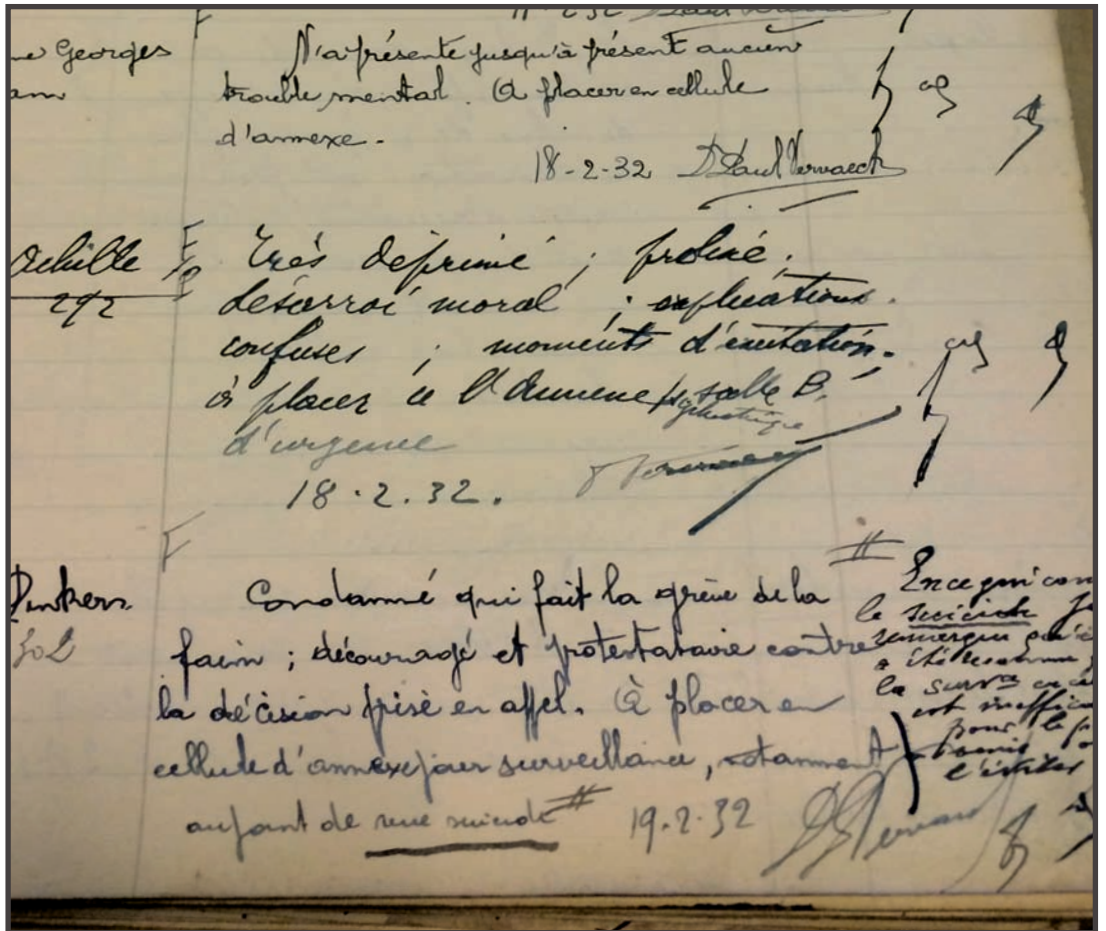 11-2-32 Dr Paul Vervaeck
Georges N'a présenté jusqu'à présent aucun
trouble mental. A placer en cellule
d'annexe.
18-2-32 Dr Paul Vervaeck
Achille Très déprimé ; prostré.
292 désarroi moral ; explications
confuses ; moments d'excitation.
à placer à l'Annexe psychiatrique salle B.
d'urgence
18.2.32. Vervaeck
Condamné qui fait la grève de la
faim ; découragé et protestataire contre
la décision prise en appel. A placer en
cellule d'annexe pour surveillance, notamment
au point de vue suicide # 19.2.32
# En ce qui con
le suicide
remarquer
a été reconnu
la survce
est ineffica
pour le
l'éviter